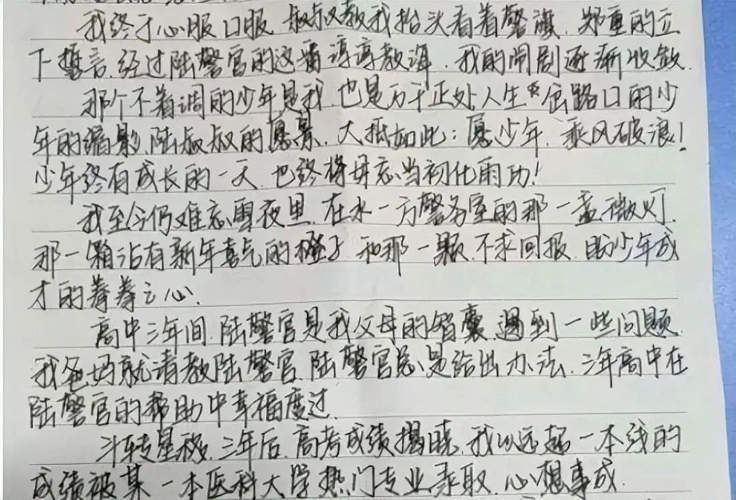 我终于心服口服 叔叔教我抬头看着警旗，郑重的立
下誓言.经过陆警官的这番谆谆教诲，我的闹剧逐渐收敛.
那个不着调的少年是我，也是万千正处人生*岔路口的少
年的缩影.陆叔叔的愿景，大抵如此：愿少年，乘风破浪！
少年终有成长的一天.也终将毋忘当初化雨功！
我至今仍难忘雪夜里.在水一方警务室的那一盏微灯.
那一箱沾有新年喜气的橙子 和那一颗.不求回报.助少年成
才的拳拳之心.
高中三年间.陆警官是我父母的智囊.遇到一些问题.
我爸妈就请教陆警官.陆警官总是给出办法.三年高中在
陆警官的帮助中幸福度过.
斗转星移.三年后.高考成绩揭晓.我以远超一本线的
成绩被某一本医科大学热门专业录取.心想事成.